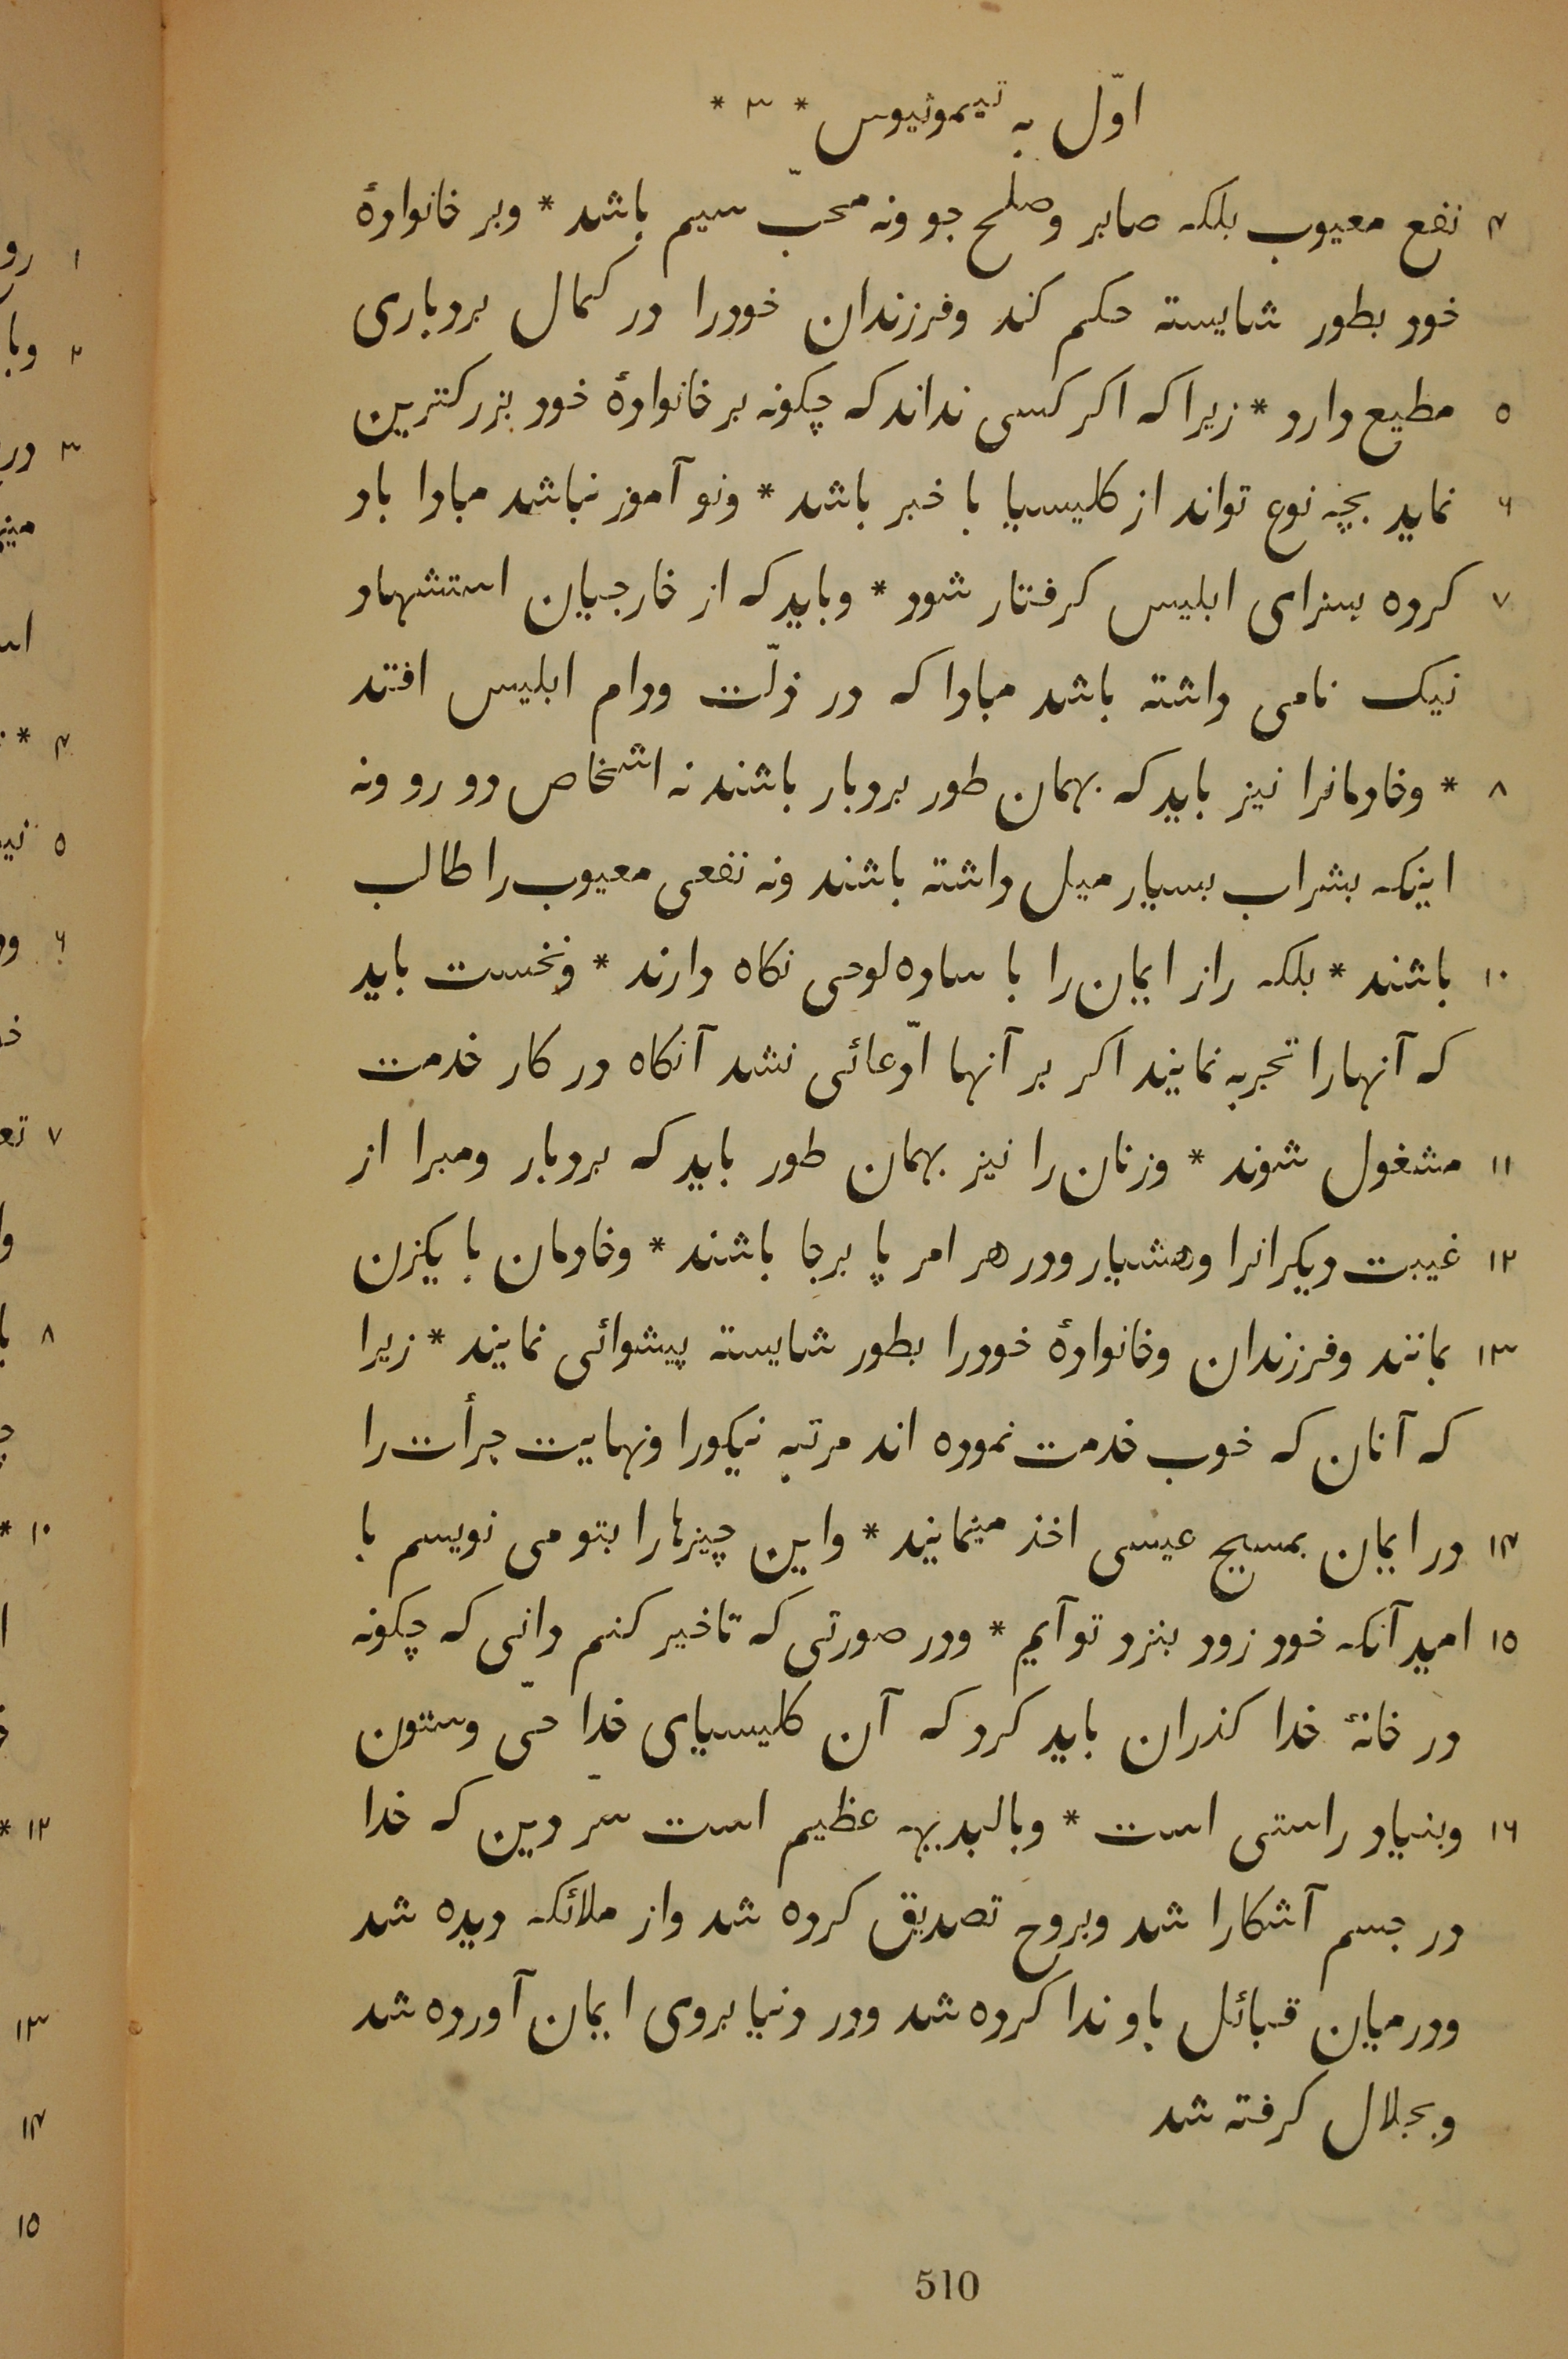 اوّل به تیموتیوس * ۳ *
۴ نفع معیوب بلکه صابر وصلح جو ونه محبّ سیم باشد * وبر خانوادهٔ
خود بطور شایسته حکم کند وفرزندان خودرا در کمال بردباری
۵ مطیع دارد * زیرا که اکر کسی نداند که چکونه بر خانوادهٔ خود بزرکترین
۶ نماید بچه نوع تواند از کلیسیا با خبر باشد * ونو آموز نباشد مبادا باد
۷ کرده بسزای ابلیس کرفتار شود * وباید که از خارجیان استشهاد
نیک نامی داشته باشد مبادا که در ذلّت ودام ابلیس افتد
۸ * وخادمانرا نیز باید که بهمان طور بردبار باشند نه اشخاص دو رو ونه
اینکه بشراب بسیار میل داشته باشند ونه نفعی معیوب را طالب
۱۰ باشند * بلکه راز ایمان را با ساده لوحی نکاه دارند * ونخست باید
که آنهارا تجربه نمایند اکر بر آنها ادّعائی نشد آنکاه در کار خدمت
۱۱ مشغول شوند * وزنان را نیز بهمان طور باید که بردبار ومبرا از
۱۲ غیبت دیکرانرا وهشیار ودر هر امر پا برجا باشند * وخادمان با یکزن
۱۳ بمانند وفرزندان وخانوادهٔ خودرا بطور شایسته پیشوائی نمایند * زیرا
که آنان که خوب خدمت نموده اند مرتبه نیکورا ونهایت جرأت را
۱۴ در ایمان بمسیح عیسی اخذ مینمایند * واین چیزها را بتو می نویسم با
۱۵ امید آنکه خود زود بنزد تو آیم * ودر صورتی که تاخیر کنم دانی که چکونه
در خانهٔ خدا کذران باید کرد که آن کلیسیای خدا حیّ وستون
۱۶ وبنیاد راستی است * وبالبدیهه عظیم است سرّ دین که خدا
در جسم آشکارا شد وبروح تصدیق کرده شد واز ملائکه دیده شد
ودر میان قبائل باو ندا کرده شد ودر دنیا بروی ایمان آورده شد
وبجلال کرفته شد
510